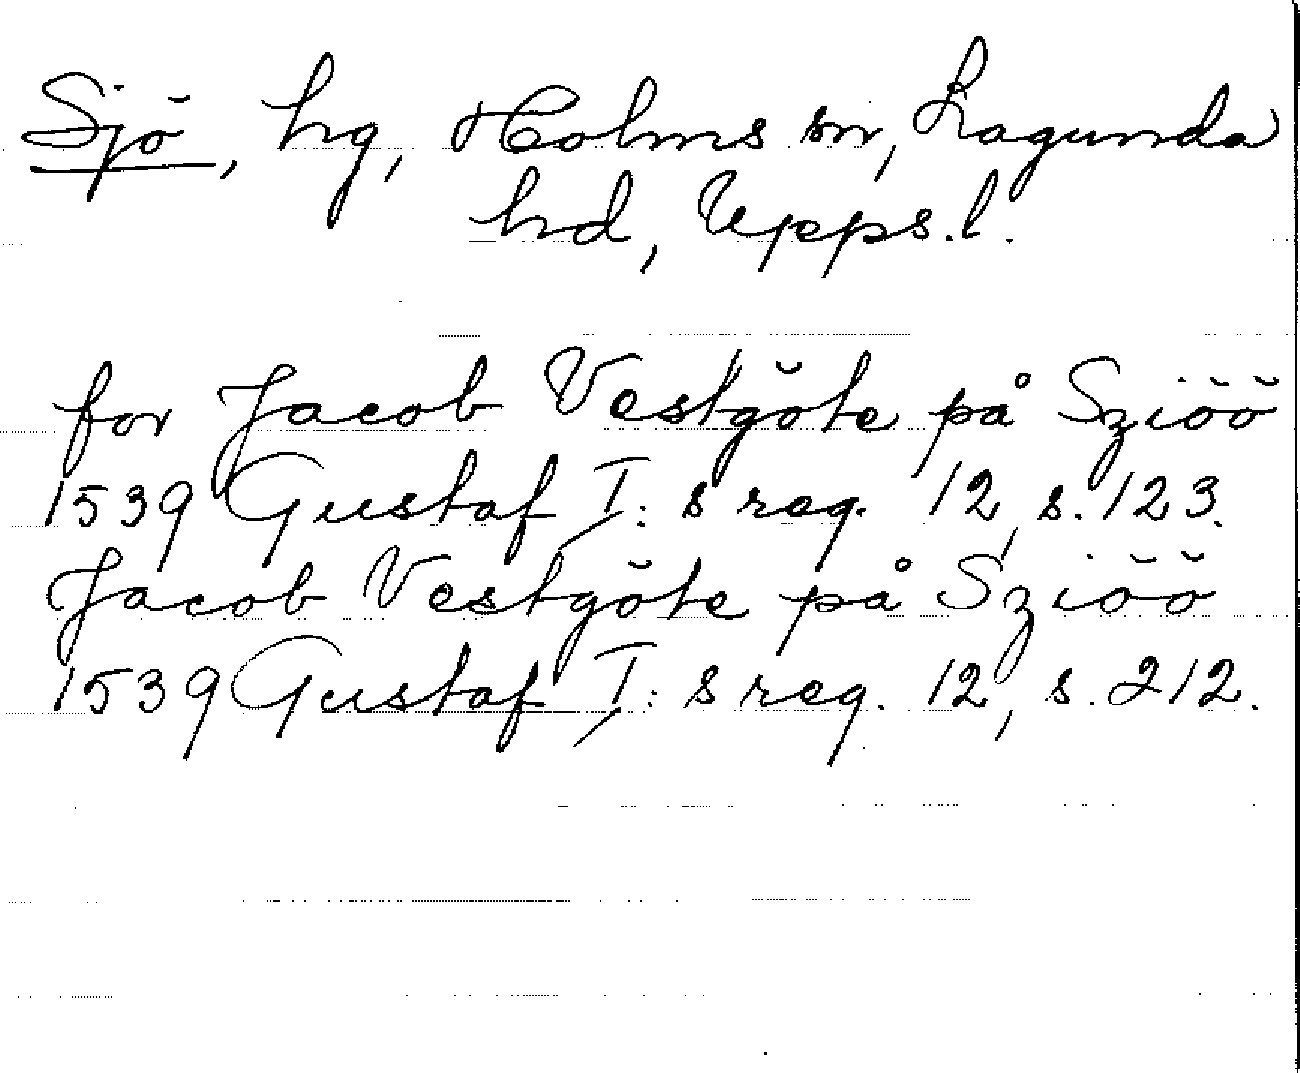 Sjö, hg, Holms sn, Lagunda
hd, Upps.l.
for Jacob Vestgöte på Sziöö
1539 Gustaf I:s reg. 12, s. 123.
Jacob Vestgöte på Sziöö
1539 Gustaf I:s reg. 12, s. 212.